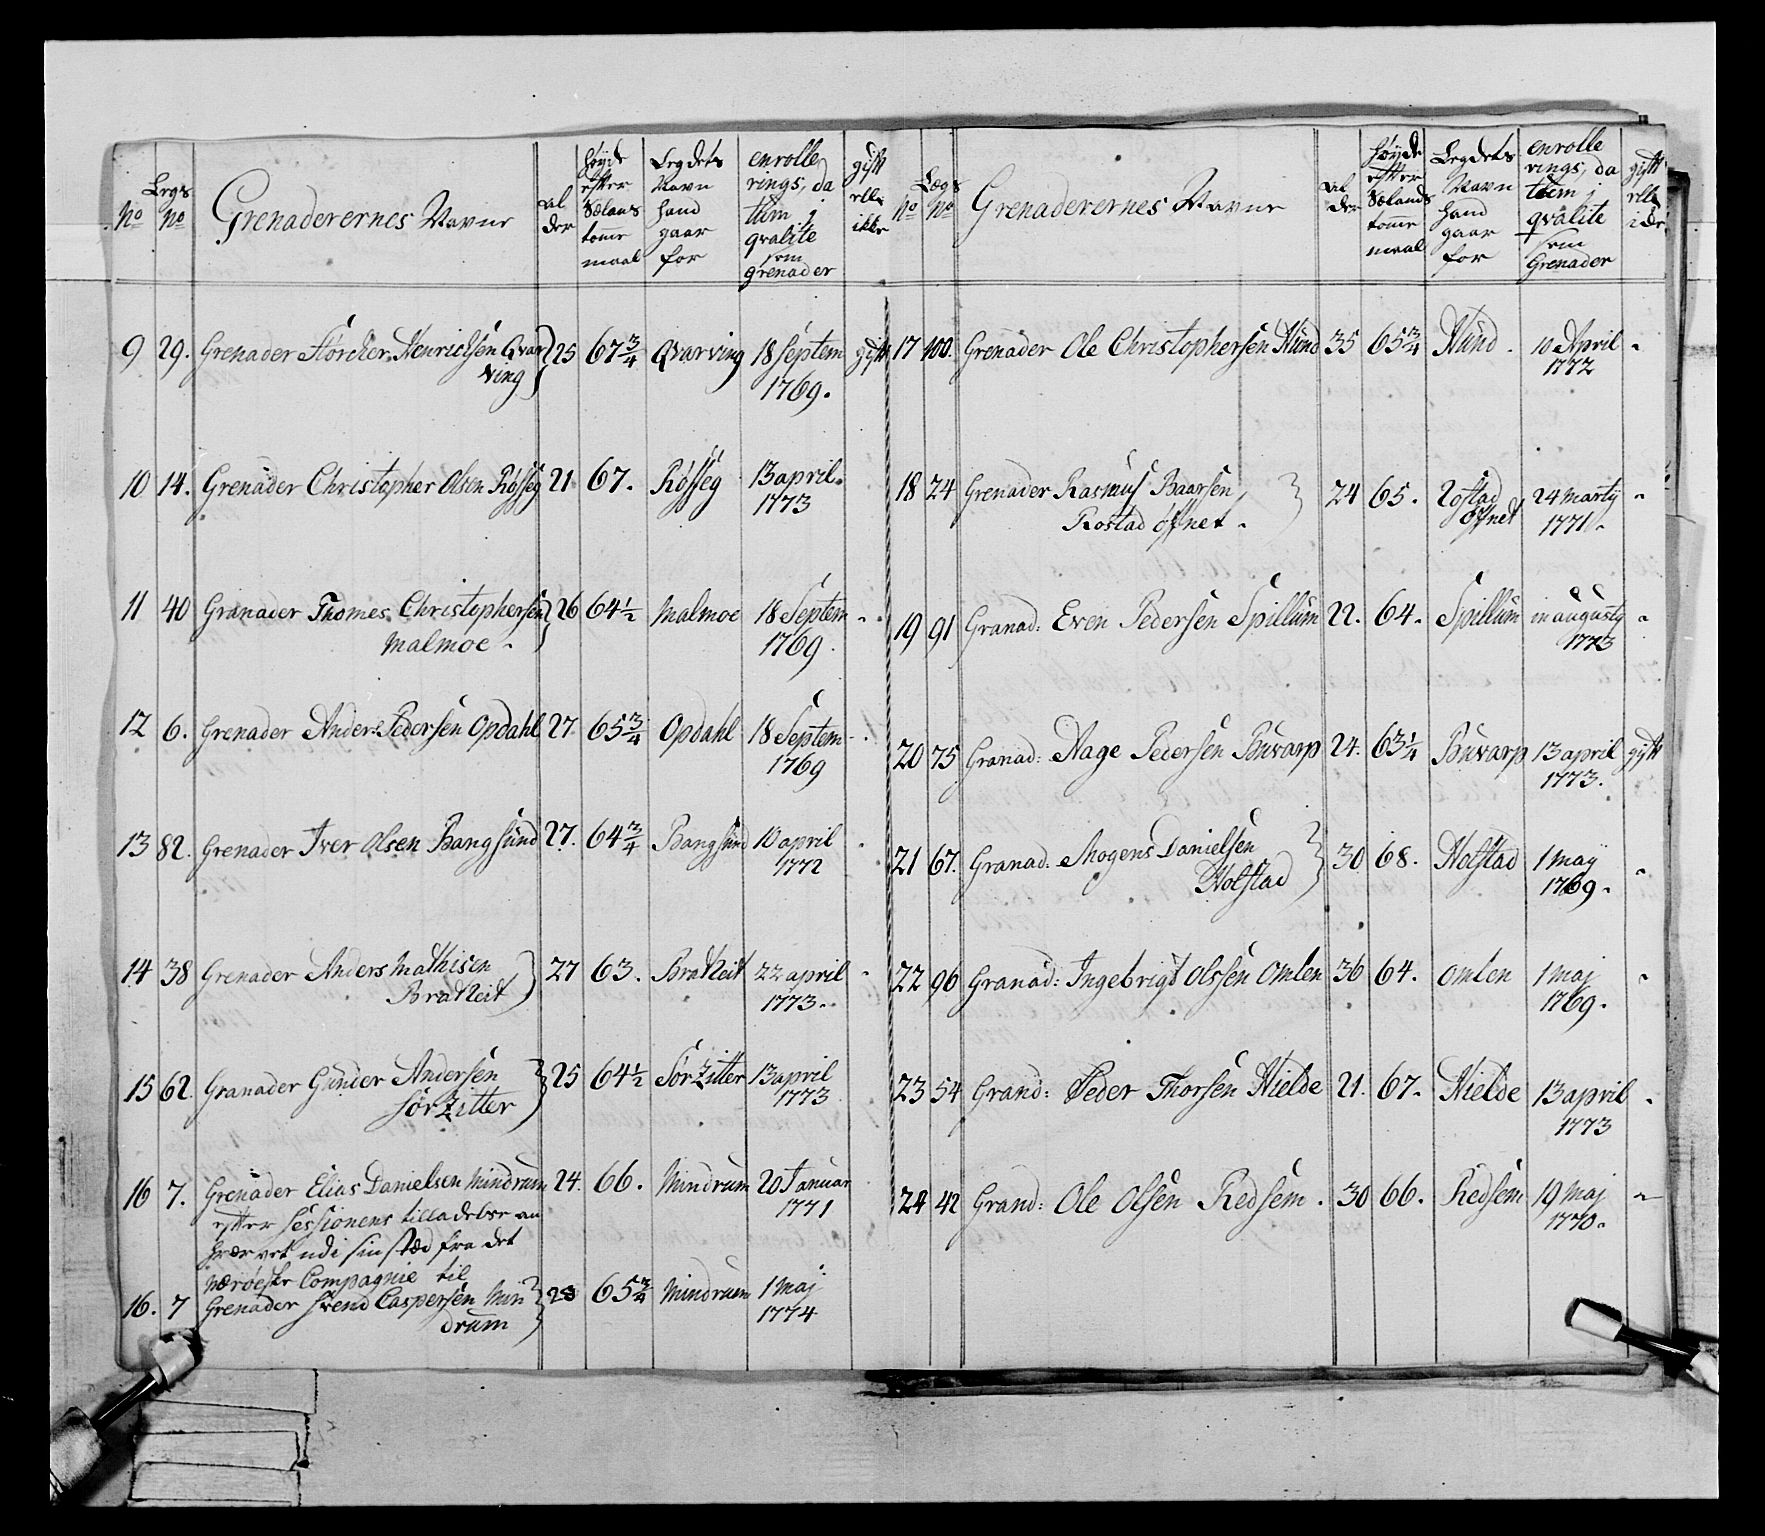 No Legs No Grenaderernes Navne al der Høyde efter Sælans tomme maal Legdets Navn hand gaar for enrolle rings, da tum i qvalite som grenader gift elle ikke
9 29. Grenader Störcher Henrichsen Qvar 25 67 3/4 Qvarving 18 Septem gift
ving 1769.
10 14. Grenader Christopher Olsen Røsseg 21 67. Røsseg 13 april.
1773
11 40 Granader Thomes Christophersen 26 64 1/2 Malmoe 18 Septem -
Malmoe - 1769.
12 6. Grenader Anders Pedersen Opdahl 27 65 3/4 Opdahl 18 Septem -
1769
13 82. Grenader Iver Olsen Bangsund 27. 64 3/4 Bangsund 10 april
1772
14 38 Grenader Anders Mathisen 27 63. Bratleit 22 april -
Bratleit 1773.
15 62. Granader Gunder Andersen 25 64 1/2 Sörzitter 13 april
Sörzitter 1773
16 7. Grenader Elias Danielsen Mindrum 24. 66. Mindrum 20 Januar
efter Sessionens tilladelse an 1771
hværvet udi sin stæd fra det
Nærøeske Compagnie til
16. 7 Grenader Svend Caspersen Min 28 65 3/4 Mindrum 1 Maj
drum 1774
No Lægs No Grenaderernes Navne al der Høyde efter Sælands tomme maal Legdets Navn hand gaar for enrolle rings, da tum i qvalite som Grenader gift elle ikke
17 100. Grenader Ole Christophersen Hund 35 65 3/4 Hund. 10 April -
1772
18 24 Grenader Rasmus Baarsen 24 65. Rostad 24 Marty -
Rostad öfnet - öfnet 1771 -
19 91 Granad: Even Pedersen Spillum 22. 64. Spillum in augusty -
1773
20 75 Granad: Aage Pedersen Buvarp 24. 63 1/4 Buvarp 13 april gift
1773.
21 67. Granad: Mogens Danielsen 30 68. Holstad 1 May -
Holstad 1769.
22 96 Granad: Ingebrigt Olssen Omlen 36 64. Omlen 1 maj -
1769.
23 54 Grand: Peder Thorsen Hielde 21. 67. Hielde 13 april -
1773
24 42 Grand: Ole Olsen Redsem. 30 66. Redsem 19 Maj -
1770.